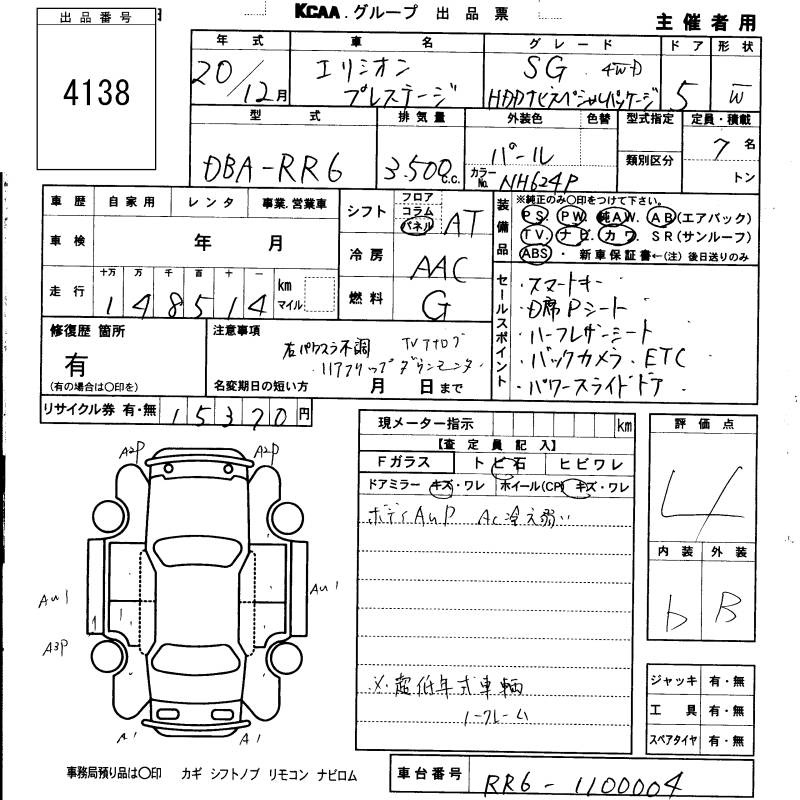 出品番号
4138
KCAA.グループ 出品票
主催者用
年式 車名 グレード ドア 形状
20/12月 エリシオン プレステージ SG 4WD HDDナビスペシャルパッケージ 5 W
型式 排気量 外装色 色替 型式指定 定員・積載
DBA-RR6 3.500c.c. パール
カラーNo. NH624P
類別区分
7名
トン
車歴 自家用 レンタ 事業.営業車
車検 年 月
走行 十万 万 千 百 十 一
148514 km マイル
シフト フロア コラム パネル AT
冷房 AAC
燃料 G
装備品
※純正のみ○印をつけて下さい。
PS. PW. 純AW. AB(エアバック)
TV. ナビ. カワ. SR(サンルーフ)
ABS ・ 新車保証書←(注)後日送りのみ
セールスポイント
・スマートキー
・D席Pシート
・ハーフレザーシート
・バックカメラ・ETC
・パワースライドドア
修復歴 箇所
有
(有の場合は○印を)
注意事項
右パワスラ不調 TVアナログ
・リアフリップダウンモニター
名変期日の短い方 月 日まで
リサイクル券 有・無 15370円
現メーター指示 km
【査定員記入】
Fガラス トビ石 ヒビワレ
ドアミラー キズ・ワレ ホイール(CP) キズ・ワレ
ボディAuP Ac冷え弱い
※.超低年式車輌
ノークレーム
評価点
4
内装 外装
b B
A2P A2P
Au1 Au1
1 1
A3P
A1 A1
ジャッキ 有・無
工具 有・無
スペアタイヤ 有・無
事務局預り品は○印 カギ シフトノブ リモコン ナビロム
車台番号 RR6-1100004